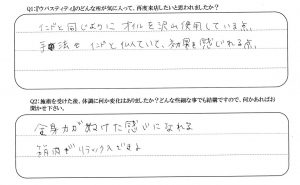 Q1:『ウパスティティ』のどんな所が気に入って、再度来店したいと思われましたか？
インドと同じように オイルを沢山使用している点、
手法も インドと似ていて、効果を感じれる点。
Q2:施術を受けた後、体調に何か変化はありましたか？どんな些細な事でも結構ですので、何かあればお
聞かせ下さい。
全身力がぬけた感じになれる
筋肉がリラックスできる